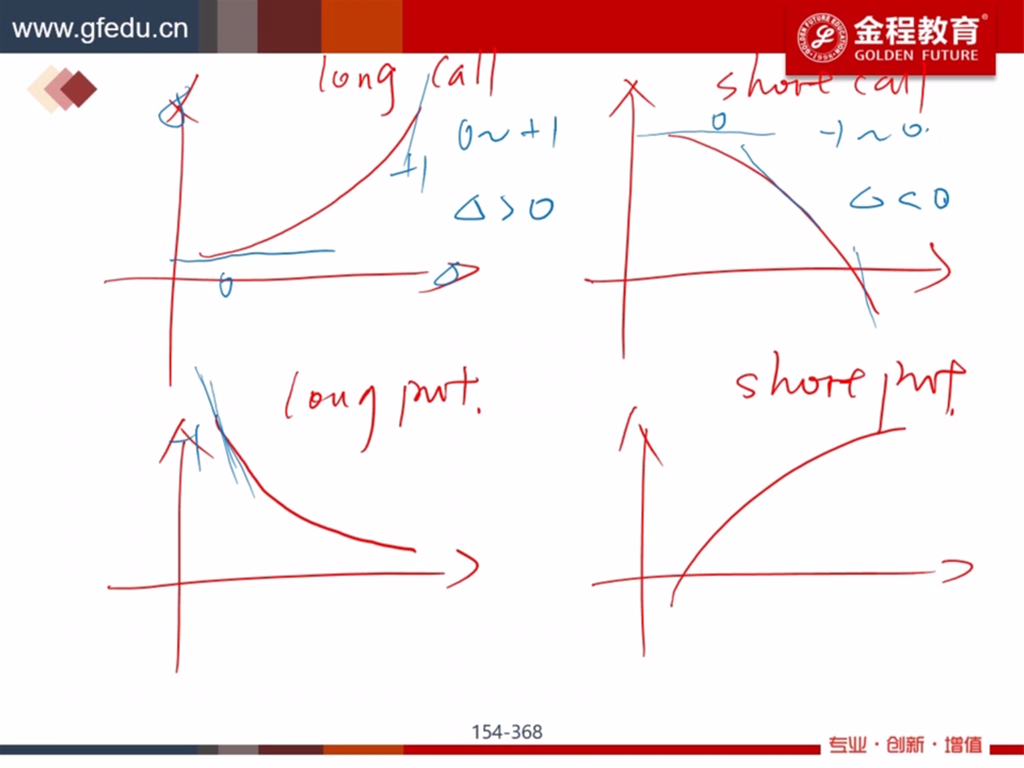 www.gfedu.cn
金程教育®
GOLDEN FUTURE
long call
short call
0~+1
Δ>0
+1
0
0
-1~0
Δ<0
long put.
short put.
-1
154-368
专业·创新·增值